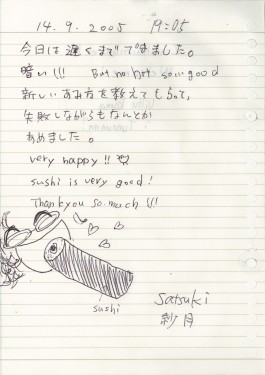 14.9.2005 19:05
今日は遅くまで できました。
暗い!!! But no hot so... good
新しいあみ方を教えてもらって、
失敗しながらもなんとか
あめました。
very happy!!
sushi is very good!
Thankyou so.much!!!
sushi
Satsuki
紗月